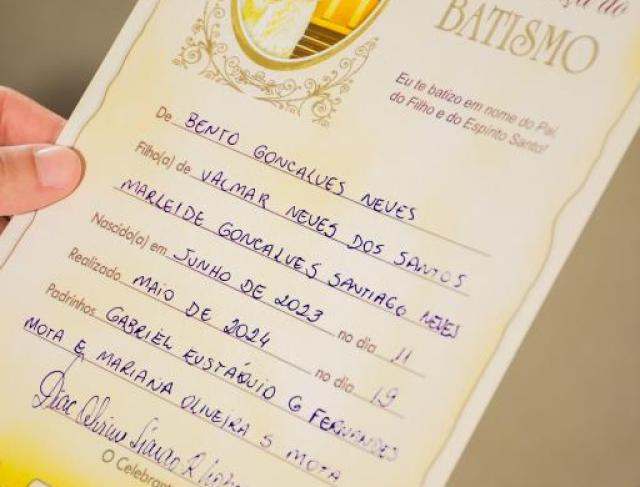 do
BATISMO
Eu te batizo em nome do Pai,
do Filho e do Espírito Santo!
De BENTO GONCALVES NEVES
Filho(a) de VALMAR NEVES DOS SANTOS
MARLEIDE GONCALVES SANTIAGO NEVES
Nascido(a) em JUNHO DE 2023 no dia 11
Realizado MAIO DE 2024 no dia 19
Padrinhos GABRIEL EUSTÁQUIO G FERNANDES
MOTA E MARIANA OLIVEIRA S MOTA
O Celebrante